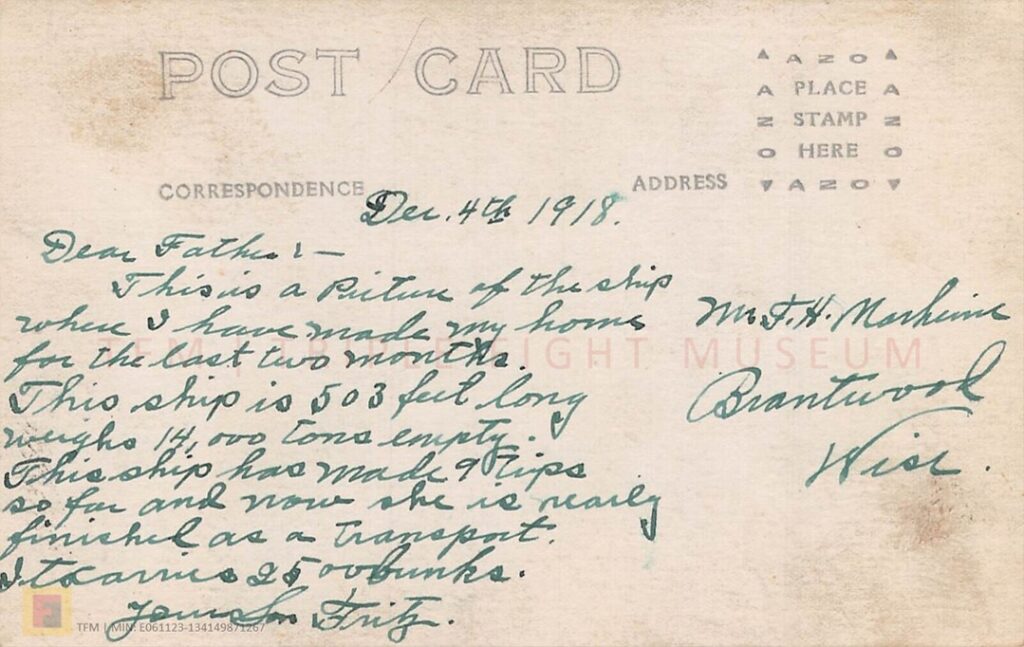 POST CARD
AZO
PLACE
STAMP
HERE
AZO
CORRESPONDENCE
ADDRESS
Dec. 4th 1918.
Dear Father:—
This is a Picture of the ship
where I have made my home
for the last two months.
This ship is 503 feet long
weighs 14,000 tons empty.
This ship has made 9 tips
so far and now she is nearly
finished as a transport.
It carries 2500 bunks.
Your Son Fritz.
Mr. F. H.
Brantwood
Wisc.
TFM | TRIPLE FIGHT MUSEUM
TFM | MIN: E061123-134149871267